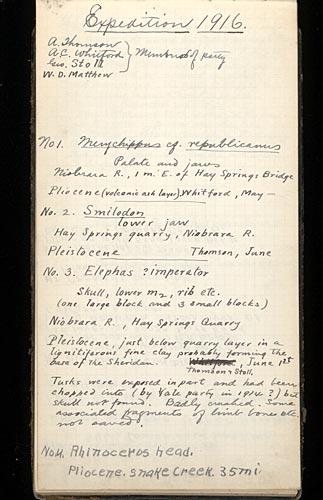 Expedition 1916.
A. Thomson
A.C. Whitford
Geo. Stoll
W.D. Matthew
Members of party
No1. Merychippus cf. republicanus
Palate and jaws
Niobrara R., 1 m. E. of Hay Springs Bridge
Pliocene (volcanic ash layer) Whitford, May —
No. 2. Smilodon
lower jaw
Hay Springs quarry, Niobrara R.
Pleistocene Thomson, June
No. 3. Elephas ?imperator
Skull, lower m2, rib etc.
(one large block and 3 small blocks)
Niobrara R., Hay Springs Quarry
Pleistocene, just below quarry layer in a
lignitiferous fine clay probably forming the
base of the Sheridan. , June 1st
Thomson & Stoll.
Tusks were exposed in part and had been
chopped into (by Yale party in 1914?) but
skull not found. Badly crushed. Some
associated fragments of limb bones etc.
not saved.
No4. Rhinoceros head.
Pliocene. Snake Creek. 35 mi